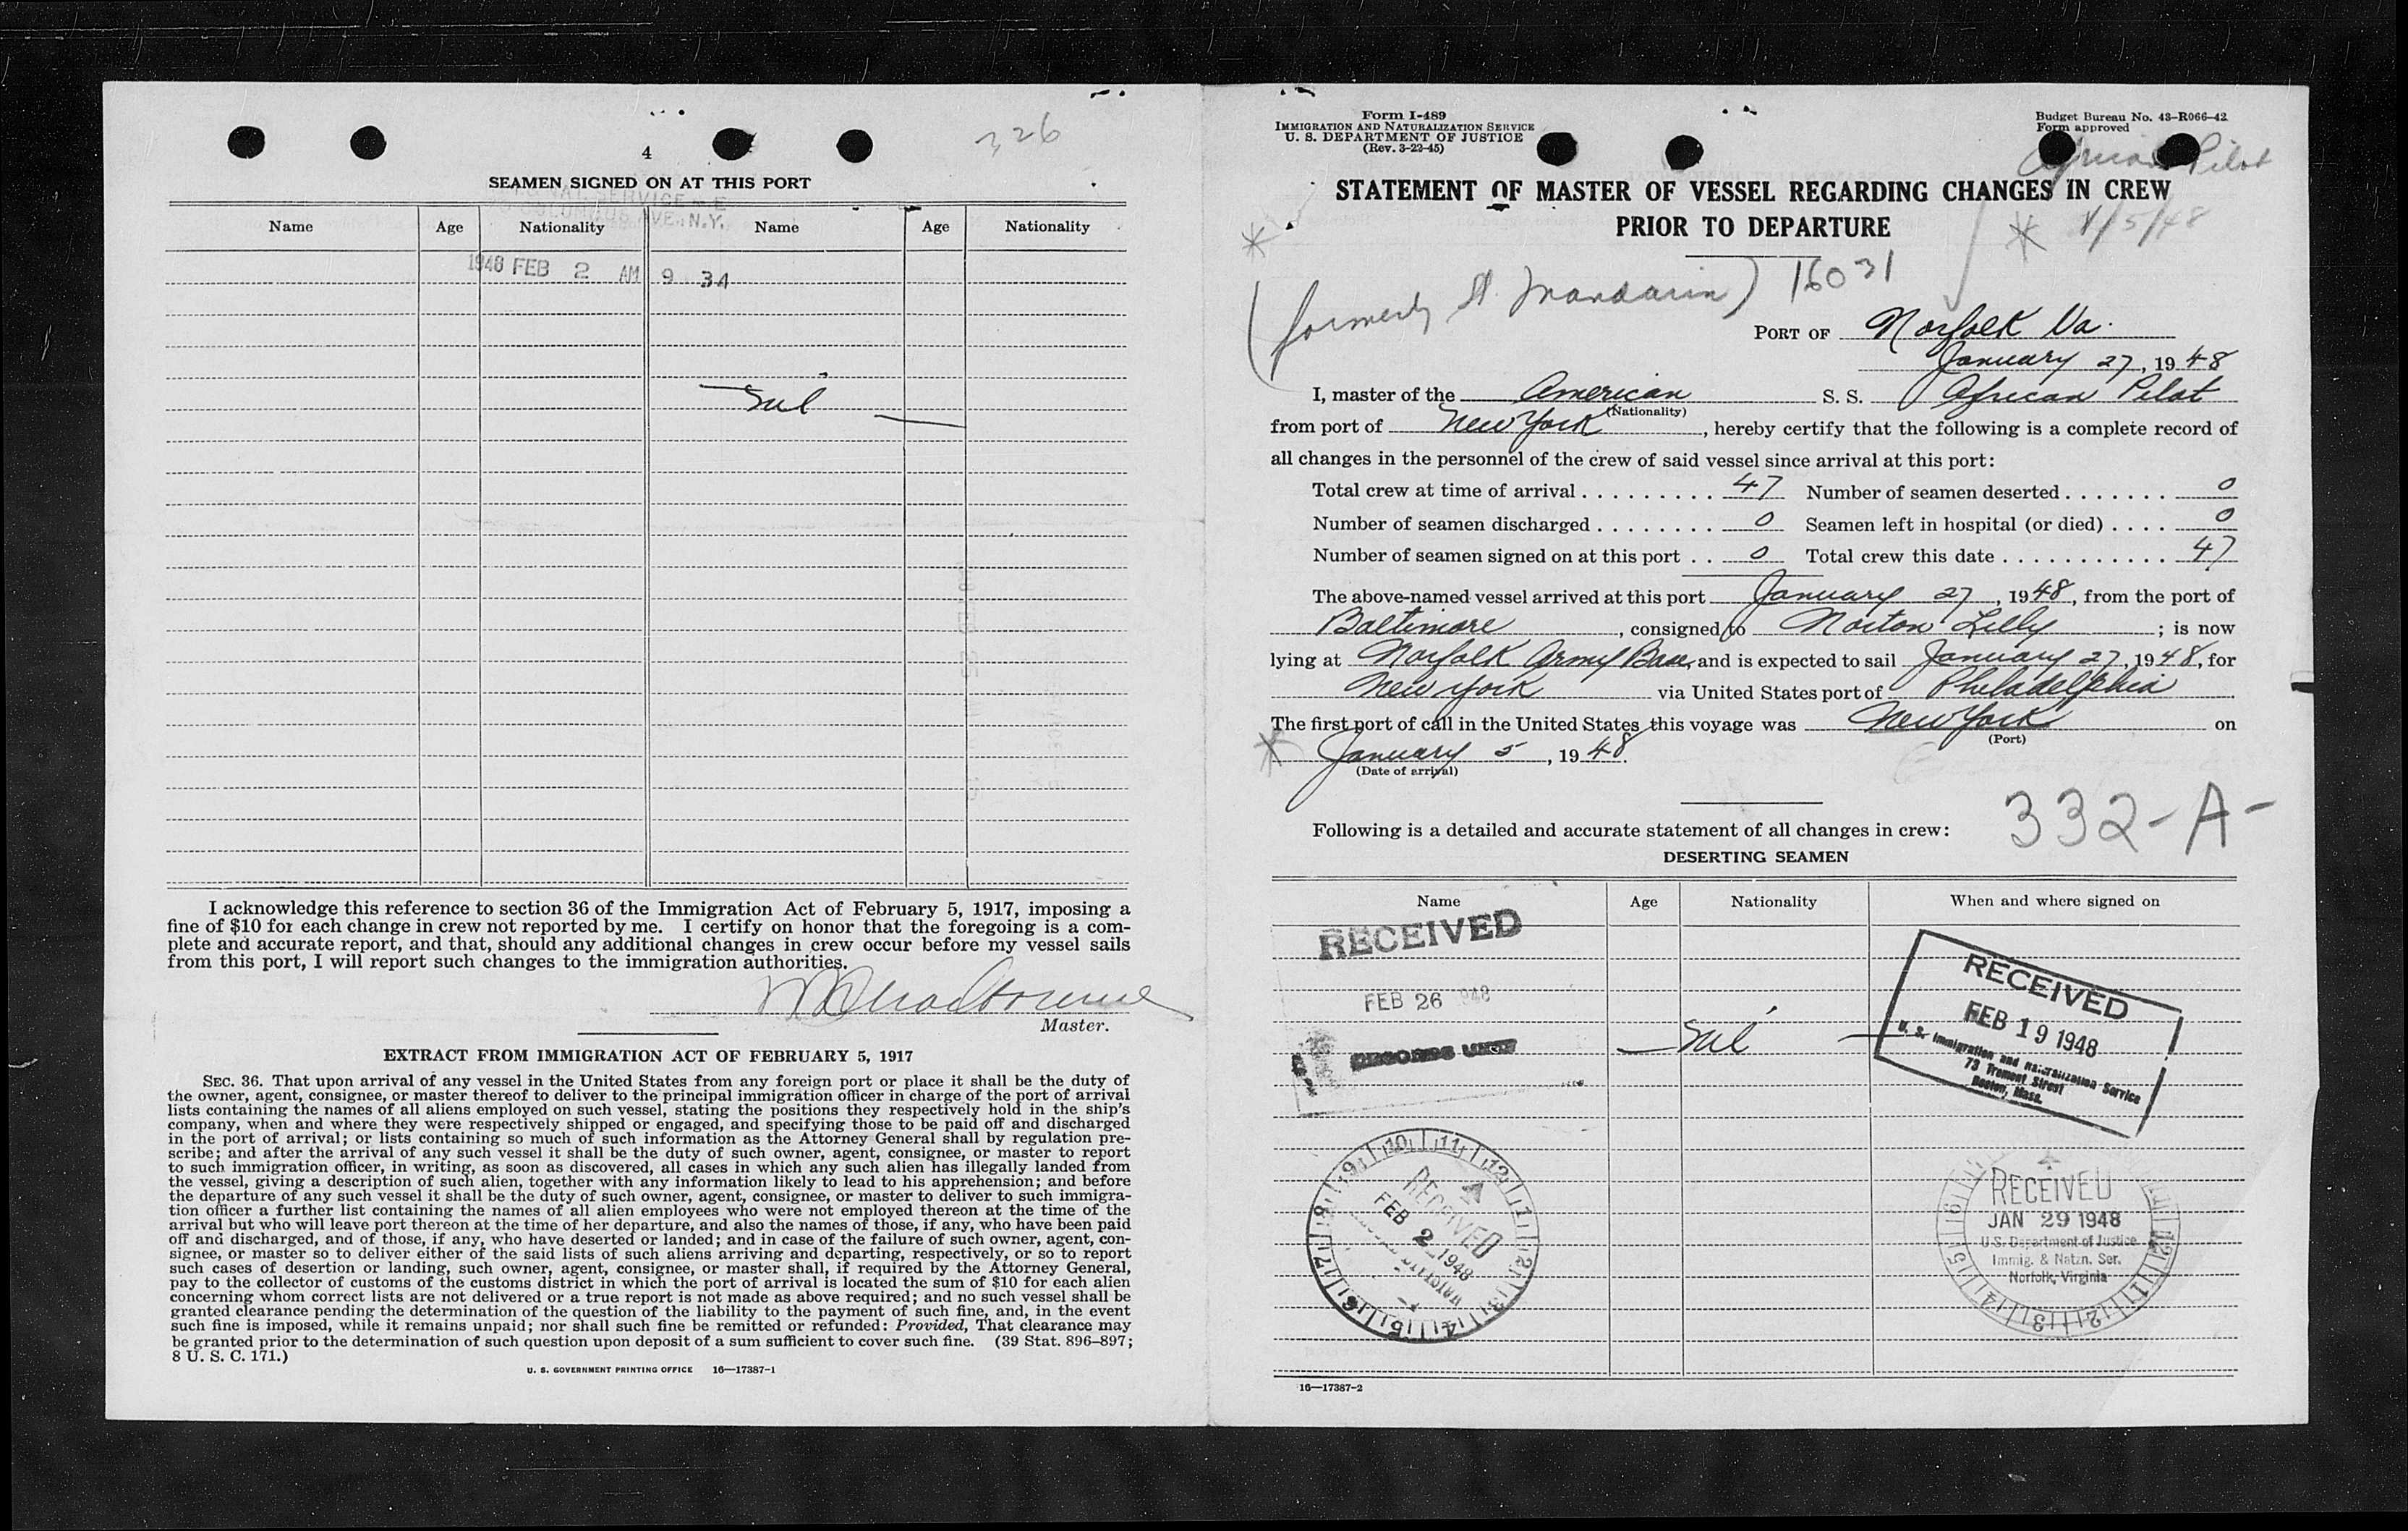 326
4
SEAMEN SIGNED ON AT THIS PORT
AVE., N.Y.
Name Age Nationality Name Age Nationality
1948 FEB 2 AM 9 34
Nil
I acknowledge this reference to section 36 of the Immigration Act of February 5, 1917, imposing a
fine of $10 for each change in crew not reported by me. I certify on honor that the foregoing is a com-
plete and accurate report, and that, should any additional changes in crew occur before my vessel sails
from this port, I will report such changes to the immigration authorities.
Master.
EXTRACT FROM IMMIGRATION ACT OF FEBRUARY 5, 1917
SEC. 36. That upon arrival of any vessel in the United States from any foreign port or place it shall be the duty of
the owner, agent, consignee, or master thereof to deliver to the principal immigration officer in charge of the port of arrival
lists containing the names of all aliens employed on such vessel, stating the positions they respectively hold in the ship's
company, when and where they were respectively shipped or engaged, and specifying those to be paid off and discharged
in the port of arrival; or lists containing so much of such information as the Attorney General shall by regulation pre-
scribe; and after the arrival of any such vessel it shall be the duty of such owner, agent, consignee, or master to report
to such immigration officer, in writing, as soon as discovered, all cases in which any such alien has illegally landed from
the vessel, giving a description of such alien, together with any information likely to lead to his apprehension; and before
the departure of any such vessel it shall be the duty of such owner, agent, consignee, or master to deliver to such immigra-
tion officer a further list containing the names of all alien employees who were not employed thereon at the time of the
arrival but who will leave port thereon at the time of her departure, and also the names of those, if any, who have been paid
off and discharged, and of those, if any, who have deserted or landed; and in case of the failure of such owner, agent, con-
signee, or master so to deliver either of the said lists of such aliens arriving and departing, respectively, or so to report
such cases of desertion or landing, such owner, agent, consignee, or master shall, if required by the Attorney General,
pay to the collector of customs of the customs district in which the port of arrival is located the sum of $10 for each alien
concerning whom correct lists are not delivered or a true report is not made as above required; and no such vessel shall be
granted clearance pending the determination of the question of the liability to the payment of such fine, and, in the event
such fine is imposed, while it remains unpaid; nor shall such fine be remitted or refunded: Provided, That clearance may
be granted prior to the determination of such question upon deposit of a sum sufficient to cover such fine. (39 Stat. 896–897;
8 U. S. C. 171.)
U. S. GOVERNMENT PRINTING OFFICE 16—17387-1
Form I-489
IMMIGRATION AND NATURALIZATION SERVICE
U. S. DEPARTMENT OF JUSTICE
(Rev. 3-22-45)
Budget Bureau No. 43-R066-42
Form approved
African Pilot
STATEMENT OF MASTER OF VESSEL REGARDING CHANGES IN CREW
PRIOR TO DEPARTURE
1/5/48
(formerly St. Mandarin) 16031
PORT OF Norfolk Va.
January 27, 1948
I, master of the American S. S. African Pilot
(Nationality)
from port of New York, hereby certify that the following is a complete record of
all changes in the personnel of the crew of said vessel since arrival at this port:
Total crew at time of arrival . . . . . . . . . 47 Number of seamen deserted . . . . . . . 0
Number of seamen discharged . . . . . . . . 0 Seamen left in hospital (or died) . . . . 0
Number of seamen signed on at this port . . 0 Total crew this date . . . . . . . . . . . . 47
The above-named vessel arrived at this port January 27, 1948, from the port of
Baltimore, consigned to Norton Lilly; is now
lying at Norfolk Army Base, and is expected to sail January 27, 1948, for
New York via United States port of Philadelphia
The first port of call in the United States this voyage was New York on
(Port)
January 5, 1948.
(Date of arrival)
332-A-
Following is a detailed and accurate statement of all changes in crew:
DESERTING SEAMEN
Name Age Nationality When and where signed on
RECEIVED
FEB 26 948
RECORDS UNIT
Nil
RECEIVED
FEB 19 1948
U. S. Immigration and Naturalization Service
73 Tremont Street
Boston, Mass.
RECEIVED
FEB 2 1948
RECEIVED
JAN 29 1948
U.S. Department of Justice
Immig. & Natzn. Ser.
Norfolk, Virginia
16—17387-2